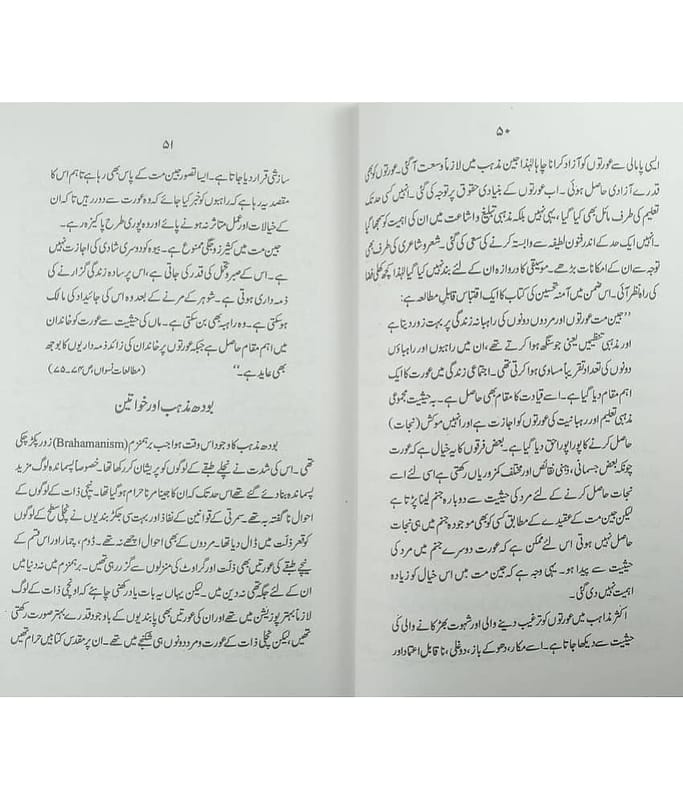 ۵۰
ایسی پامالی سے عورتوں کو آزاد کرانا چاہا لہٰذا جین مذہب میں لازماً وسعت آ گئی۔ عورتوں کو بھی
قدرے آزادی حاصل ہوئی۔ اب عورتوں کے بنیادی حقوق پر توجہ کی گئی۔ انہیں کسی حد تک
تعلیم کی طرف مائل بھی کیا گیا، یہی نہیں بلکہ مذہبی تبلیغ و اشاعت میں ان کی اہمیت کو سمجھا گیا
۔ انہیں ایک حد کے اندر فنون لطیفہ سے وابستہ کرنے کی سعی کی گئی۔ شعر و شاعری کی طرف بھی
توجہ سے ان کے امکانات بڑھے۔ موسیقی کا دروازہ ان کے لئے بند نہیں کیا گیا لہٰذا کچھ کھلی فضا
کی راہ نظر آئی۔ اس ضمن میں آمنہ تحسین کی کتاب کا ایک اقتباس قابلِ مطالعہ ہے:
”جین مت عورتوں اور مردوں دونوں کی راہبانہ زندگی پر بہت زور دیتا ہے
اور مذہبی تنظیمیں یعنی جو سنگھ ہوا کرتے تھے، ان میں راہبوں اور راہباؤں
دونوں کی تعداد تقریباً مساوی ہوا کرتی تھی۔ اجتماعی زندگی میں عورت کا ایک
اہم مقام دیا گیا ہے۔ اسے قیادت کا مقام بھی حاصل ہے۔ بہ حیثیت مجموعی
مذہبی تعلیم اور رہبانیت کی عورتوں کو اجازت ہے اور انہیں موکش (نجات)
حاصل کرنے کا پورا پورا حق دیا گیا ہے۔ بعض فرقوں کا یہ خیال ہے کہ عورت
چونکہ بعض جسمانی، ذہنی نقائص اور مختلف کمزوریاں رکھتی ہے اسی لئے اسے
نجات حاصل کرنے کے لئے مرد کی حیثیت سے دوبارہ جنم لینا پڑتا ہے
لیکن جین مت کے عقیدے کے مطابق کسی کو بھی موجودہ جنم میں ہی نجات
حاصل نہیں ہوتی اس لئے ممکن ہے کہ عورت دوسرے جنم میں مرد کی
حیثیت سے پیدا ہو۔ یہی وجہ ہے کہ جین مت میں اس خیال کو زیادہ
اہمیت نہیں دی گئی۔
اکثر مذاہب میں عورتوں کو ترغیب دینے والی اور شہوت بھڑکانے والی کی
حیثیت سے دیکھا جاتا ہے۔ اسے مکار، دھوکے باز، دوغلی، ناقابلِ اعتماد اور
۵۱
سازشی قرار دیا جاتا ہے۔ ایسا تصور جین مت کے پاس بھی رہا ہے تاہم اس کا
مقصد یہ رہا ہے کہ راہبوں کو خبر کیا جائے کہ وہ عورت سے دور رہیں تا کہ ان
کے خیالات اور عمل متاثر نہ ہونے پائے اور وہ پوری طرح پاکیزہ رہے۔
جین مت میں کثیر زوجگی ممنوع ہے۔ بیوہ کو دوسری شادی کی اجازت نہیں
ہے۔ اس کے صبر و تحمل کی قدر کی جاتی ہے، اس پر سادہ زندگی گزارنے کی
ذمہ داری ہوتی ہے۔ شوہر کے مرنے کے بعد وہ اس کی جائیداد کی مالک
ہو سکتی ہے۔ وہ راہبہ بھی بن سکتی ہے۔ ماں کی حیثیت سے عورت کو خاندان
میں اہم مقام حاصل ہے جبکہ عورتوں پر خاندان کی زائد ذمہ داریوں کا بوجھ
بھی عاید ہے۔“ (مطالعات نسواں، ص ۷۴۔۷۵)
بودھ مذہب اور خواتین
بودھ مذہب کا وجود اس وقت ہوا جب برہمنزم (Brahamanism) زور پکڑ چکی
تھی۔ اس کی شدت نے نچلے طبقے کے لوگوں کو پریشان کر رکھا تھا۔ خصوصاً پسماندہ لوگ مزید
پسماندہ بنا دئے گئے تھے اس حد تک کہ ان کا جینا مرنا حرام ہو گیا تھا۔ نیچی ذات کے لوگوں کے
احوال ناگفتہ بہ تھے۔ سمرتی کے قوانین کے نفاذ اور بہت سی جکڑ بندیوں نے نچلی سطح کے لوگوں
کو قعر ذلت میں ڈال دیا تھا۔ مردوں کے بھی احوال اچھے نہ تھے۔ ڈوم، چمار اور اس قسم کے
نیچے طبقے کی عورتیں بھی ذلت اور گراوٹ کی منزلوں سے گزر رہی تھیں۔ برہمنزم میں نہ دنیا میں
ان کے لئے جگہ تھی نہ دین میں۔ لیکن یہاں یہ بات یاد رکھنی چاہئے کہ اونچی ذات کے لوگ
لازماً بہتر پوزیشن میں تھے اور ان کی عورتیں بھی پابندیوں کے باوجود قدرے بہتر صورت رکھتی
تھیں، لیکن نچلی ذات کے عورت و مرد دونوں ہی شکنجے میں تھے۔ ان پر مقدس کتابیں حرام تھیں